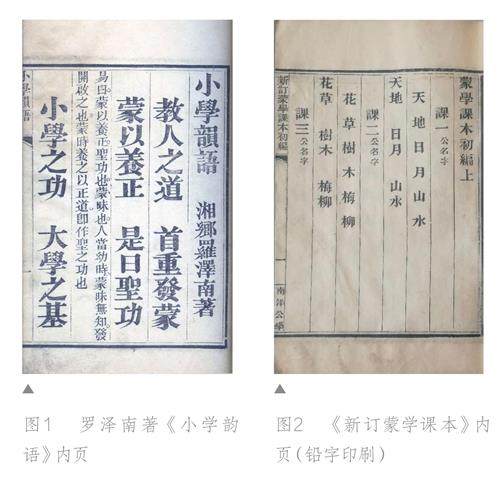 小學韻語 湘鄉羅澤南著
教人之道 首重發蒙
蒙以養正 是曰聖功
易曰蒙以養正聖功也蒙昧也人當幼時蒙昧無知發
開啟之也蒙時養之以正道即作聖之功也
小學之功 大學之基
小學韻語 一
蒙學課本初編上
課一 公名字
天 地 日 月 山 水
天地 日月 山水
課二 公名字
花 草 樹 木 梅 柳
花草 樹木 梅柳
課三 公名字
新訂蒙學課本初編 一 南洋公學
图1 罗泽南著《小学韵
语》内页
图2 《新订蒙学课本》内
页(铅字印刷)